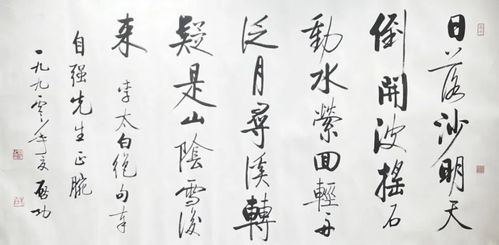 日落沙明天
倒開波搖石
動水縈回輕舟
泛月尋溪轉
疑是山陰雪後
來 李太白絕句奉
自强先生正腕
一九九零年夏 启功